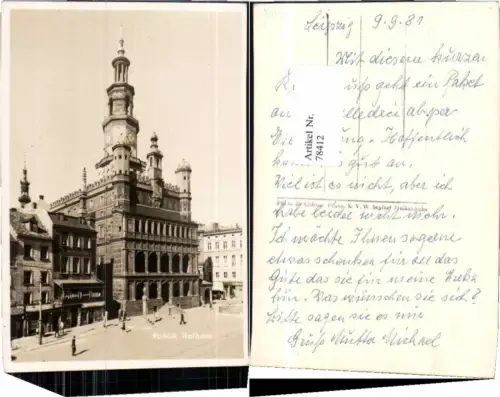 POSEN, Rathaus
Leipzig 9.9.81
Mit diesem kurzen
Gruß geht ein Paket
an alle drei ab per
Hoffentlich
gut an.
Viel ist es nicht, aber ich
habe leider nicht mehr.
Ich möchte Ihnen so gerne
etwas schenken für all das
Gute das sie für meine
tun. Was wünschen sie sich?
Bitte sagen sie es mir
Gruß Mutter Michael
Artikel Nr.
78412